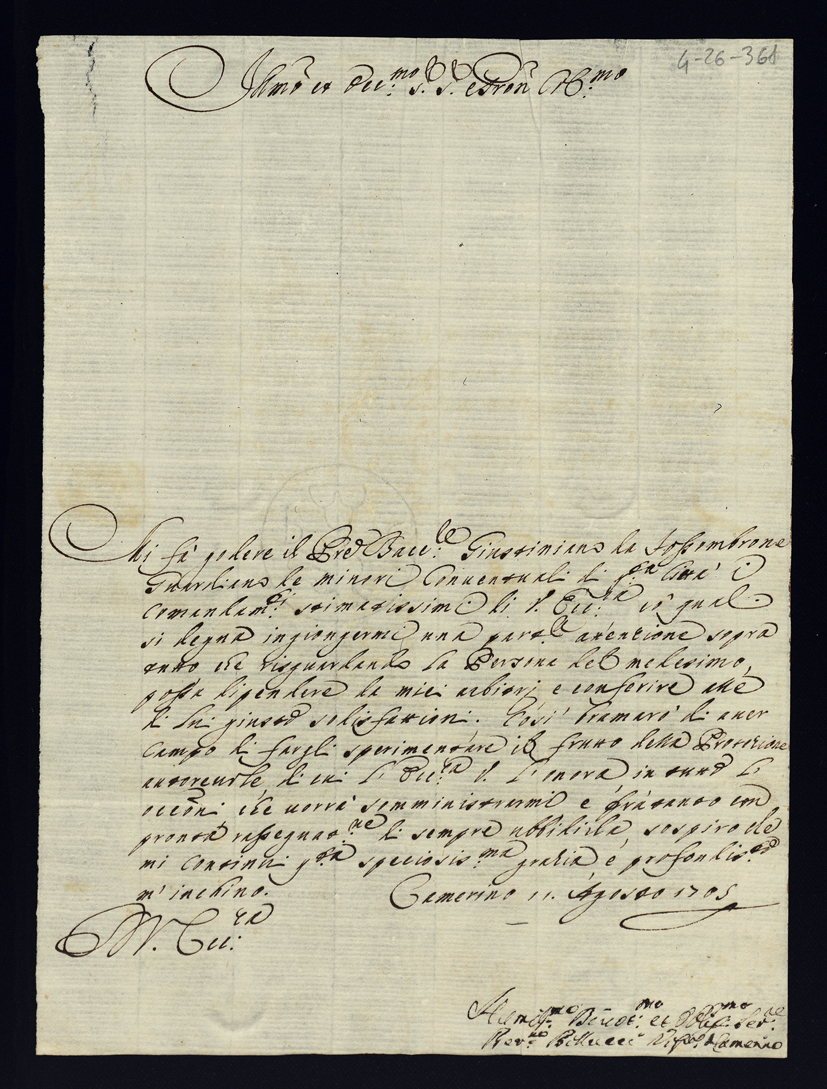 4-26-361
Illmo et Ecc.mo S. S. e Pron Col.mo
Mi fà vedere il Pre Bacc.re Giustiniano da Fossombrone
Guardiano de minori Conventuali di q.ta Città i
Comandam.ti stimatissimi di V. Ecc.za cò quali
si degna ingiongermi una attenzione sopra
tutto che risguardando la Persona del medesimo,
possa dipendere da miei arbitrij e conferire alle
di lui giuste solisfattioni. Così bramarò di aver
campo di fargli sperimentare il frutto della Protezione
autorevole, di cui l'Ecc.za V. l'onora in tutte le
occõni che vorrà somministrarmi e frà tanto con
pronta rassegnat.ne di sempre ubbidirla sospiro che
mi continui q.ta speciosis.ma grazia e profondis.te
m'inchino. Camerino 11. Agosto 1705
V. Ecc.za
Humiss.mo Devot.mo et Obblig.mo Ser.re
Bellucci Camerino